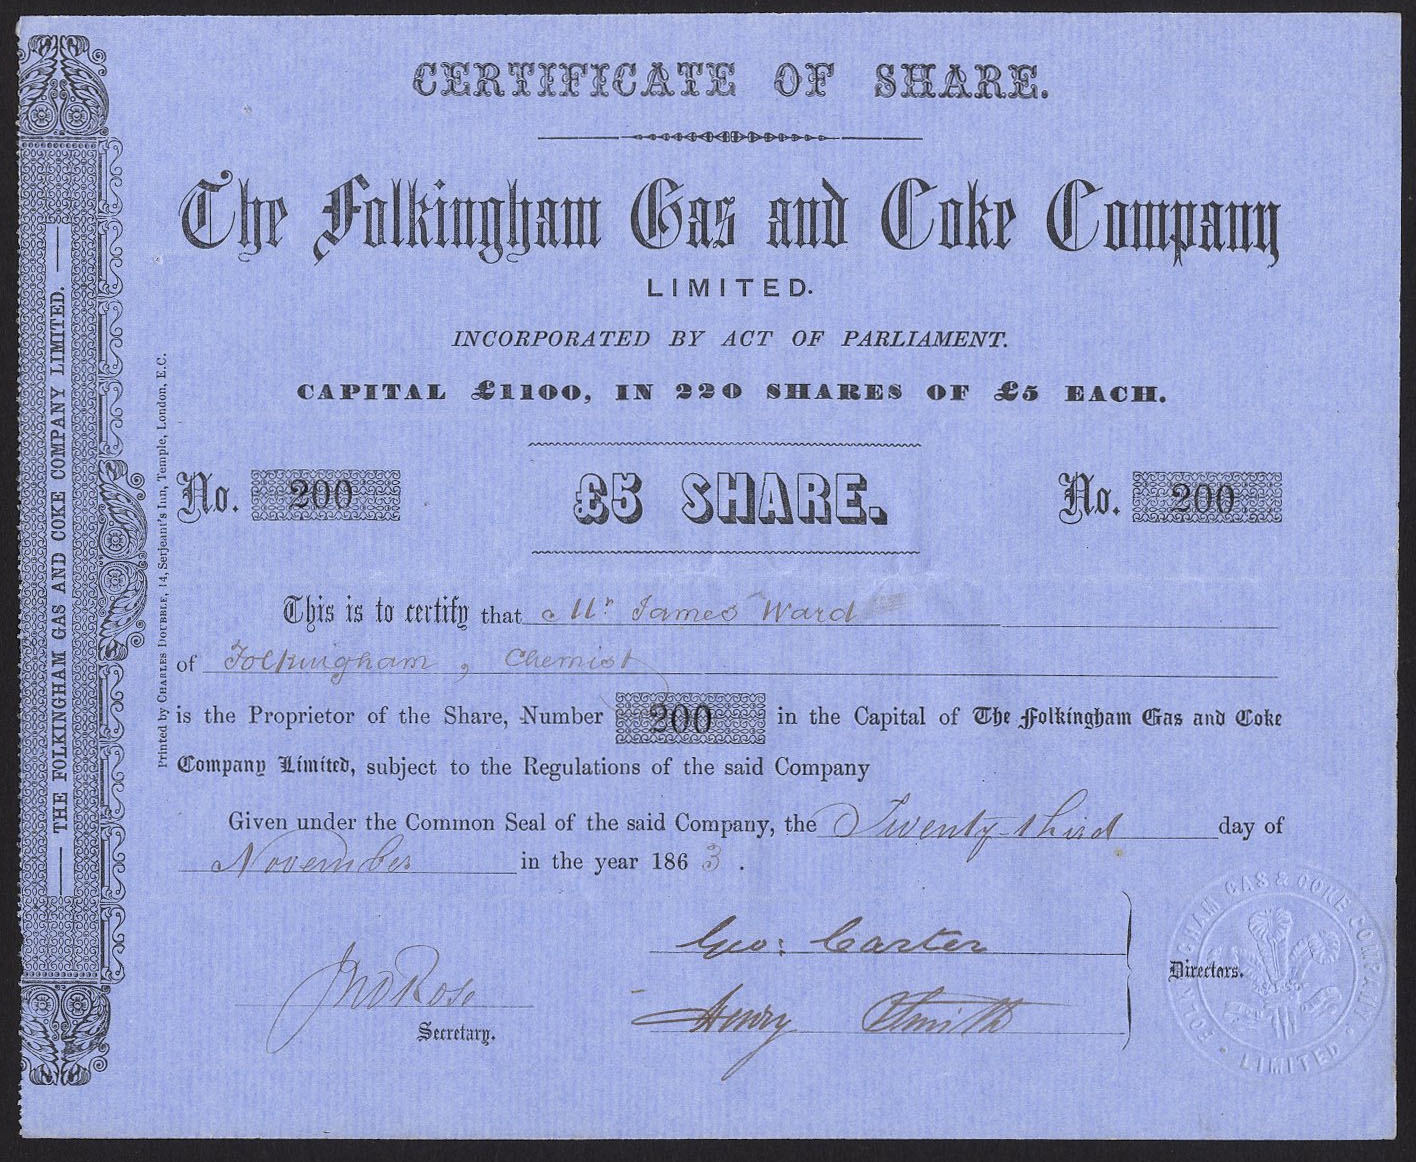 CERTIFICATE OF SHARE.
The Folkingham Gas and Coke Company
LIMITED.
INCORPORATED BY ACT OF PARLIAMENT.
CAPITAL £1100, IN 220 SHARES OF £5 EACH.
No. 200 £5 SHARE. No. 200
This is to certify that Mr James Ward
of Folkingham, Chemist
is the Proprietor of the Share, Number 200 in the Capital of The Folkingham Gas and Coke
Company Limited, subject to the Regulations of the said Company
Given under the Common Seal of the said Company, the Twenty-third day of
November in the year 1863.
Geo: Carter
Jno Rose
Henry Smith
Directors.
Secretary.
THE FOLKINGHAM GAS AND COKE COMPANY LIMITED.
Printed by CHARLES DOUBBLE, 14, Serjeant's Inn, Temple, London, E.C.
FOLKINGHAM GAS & COKE COMPANY
LIMITED